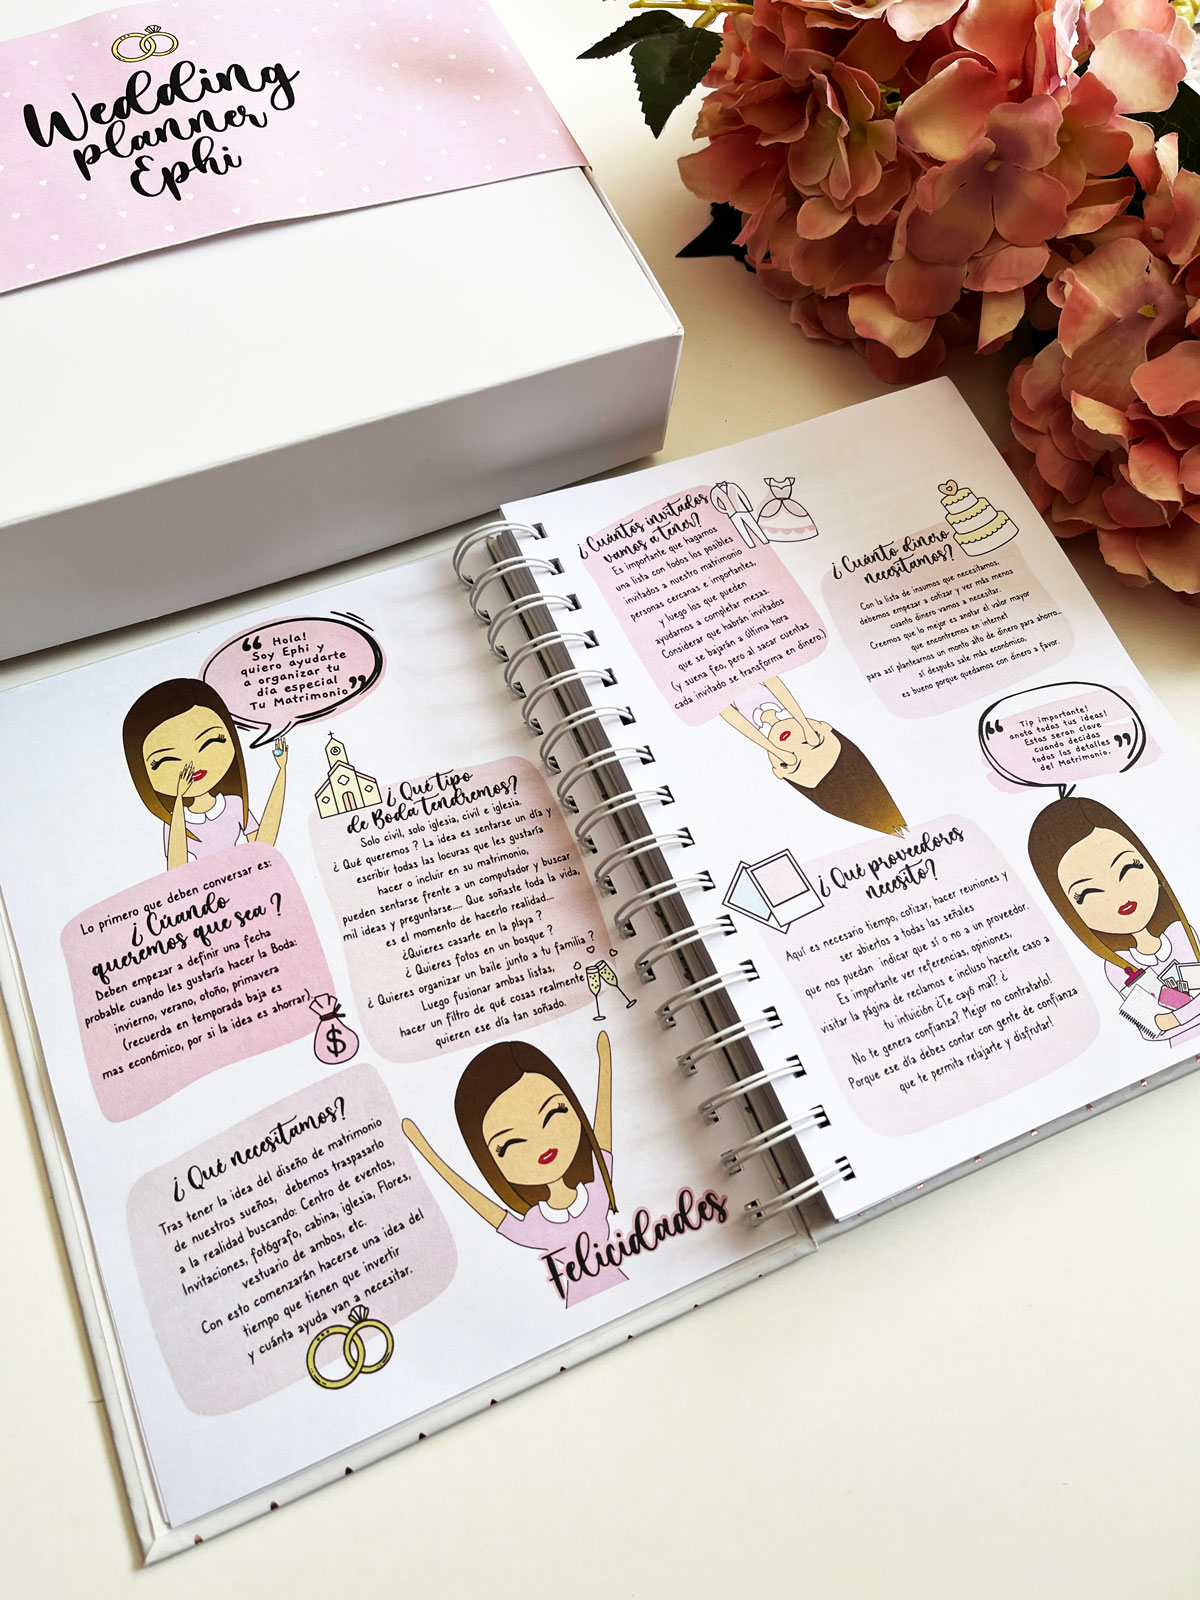 Wedding
planner
Ephi
“ Hola!
Soy Ephi y
quiero ayudarte
a organizar tu
día especial
Tu Matrimonio ”
Lo primero que deben conversar es:
¿Cúando
queremos que sea ?
Deben empezar a definir una fecha
probable cuando les gustaría hacer la Boda:
invierno, verano, otoño, primavera
(recuerda en temporada baja es
mas económico, por si la idea es ahorrar)
$
¿Qué tipo
de Boda tendremos?
Solo civil, solo iglesia, civil e iglesia.
¿ Qué queremos ? La idea es sentarse un día y
escribir todas las locuras que les gustaría
hacer o incluir en su matrimonio,
pueden sentarse frente a un computador y buscar
mil ideas y preguntarse.... Que soñaste toda la vida,
es el momento de hacerlo realidad...
¿Quieres casarte en la playa ?
¿ Quieres fotos en un bosque ?
¿ Quieres organizar un baile junto a tu familia ?
Luego fusionar ambas listas,
hacer un filtro de qué cosas realmente
quieren ese día tan soñado.
¿Qué necesitamos?
Tras tener la idea del diseño de matrimonio
de nuestros sueños, debemos traspasarlo
a la realidad buscando: Centro de eventos,
Invitaciones, fotógrafo, cabina, iglesia, Flores,
vestuario de ambos, etc.
Con esto comenzarán hacerse una idea del
tiempo que tienen que invertir
y cuánta ayuda van a necesitar.
Felicidades
¿Cuántos invitados
vamos a tener?
Es importante que hagamos
una lista con todos los posibles
invitados a nuestro matrimonio
personas cercanas e importantes,
y luego los que pueden
ayudarnos a completar mesas.
Considerar que habrán invitados
que se bajarán a última hora
(y suena feo, pero al sacar cuentas
cada invitado se transforma en dinero.)
¿Cuánto dinero
necesitamos?
Con la lista de insumos que necesitamos,
debemos empezar a cotizar y ver más menos
cuanto dinero vamos a necesitar.
Creemos que lo mejor es anotar el valor mayor
que encontremos en internet
para así plantearnos un monto alto de dinero para ahorro...
sí después sale más económico,
es bueno porque quedamos con dinero a favor.
“ Tip importante!
anota todas tus ideas!
Estas seran clave
cuando decidas
todos los detalles
del Matrimonio. ”
¿Qué proveedores
necesito?
Aquí es necesario tiempo, cotizar, hacer reuniones y
ser abiertos a todas las señales
que nos puedan indicar que sí o no a un proveedor.
Es importante ver referencias, opiniones,
visitar la página de reclamos e incluso hacerle caso a
tu intuición ¿Te cayó mal? ¿
No te genera confianza? Mejor no contratarlo!
Porque ese día debes contar con gente de confianza
que te permita relajarte y disfrutar!